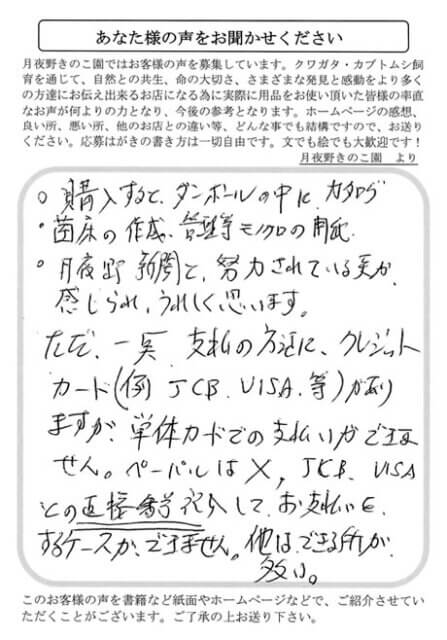 あなた様の声をお聞かせください
月夜野きのこ園ではお客様の声を募集しています。クワガタ・カブトムシ飼
育を通じて、自然との共生、命の大切さ、さまざまな発見と感動をより多く
の方達にお伝え出来るお店になる為に実際に用品をお使い頂いた皆様の率直
なお声が何よりの力となり、今後の参考となります。ホームページの感想、
良い所、悪い所、他のお店との違い等、どんな事でも結構ですので、お送り
ください。応募はがきの書き方は一切自由です。文でも絵でも大歓迎です!
月夜野きのこ園 より
○購入すると、ダンボールの中に、カタログ
・菌床の作成、管理等モノクロの用紙.
○月夜野新聞と、努力されている点が、
感じられ、うれしく思います。
ただ、一点、支払の方法に、クレジット
カード(例 JCB. VISA. 等)があり
ますが、単体カードでの支払いができま
せん。ペーパルは×, JCB. VISA
との直接番号記入して、お支払いを、
するケースが、できません。他は、できる所が、
多い。
このお客様の声を書籍など紙面やホームページなどで、ご紹介させてい
ただくことがございます。ご了承の上お送り下さい。